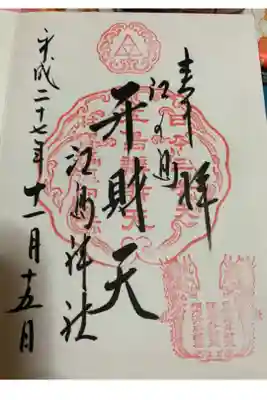 奉拝
江の島
弁財天
江島神社
平成二十七年十一月十五日